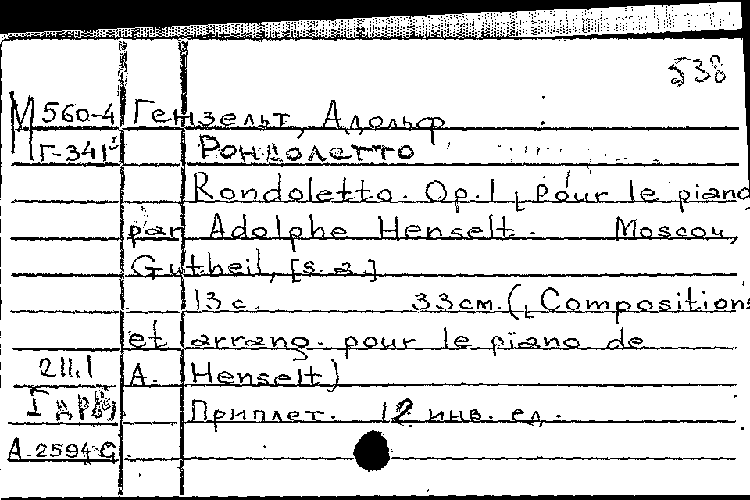 538
М 560-4 Гензельт, Адольф
Г-341 Рондолетто
Rondoletto. Op.1 pour le piano
par Adolphe Henselt. Moscou,
Gutheil, [s.a.]
13 с. 33 см. (Compositions
et arrang. pour le piano de
211.1 A. Henselt)
Приплет. 12 инв. ед.
А.2594